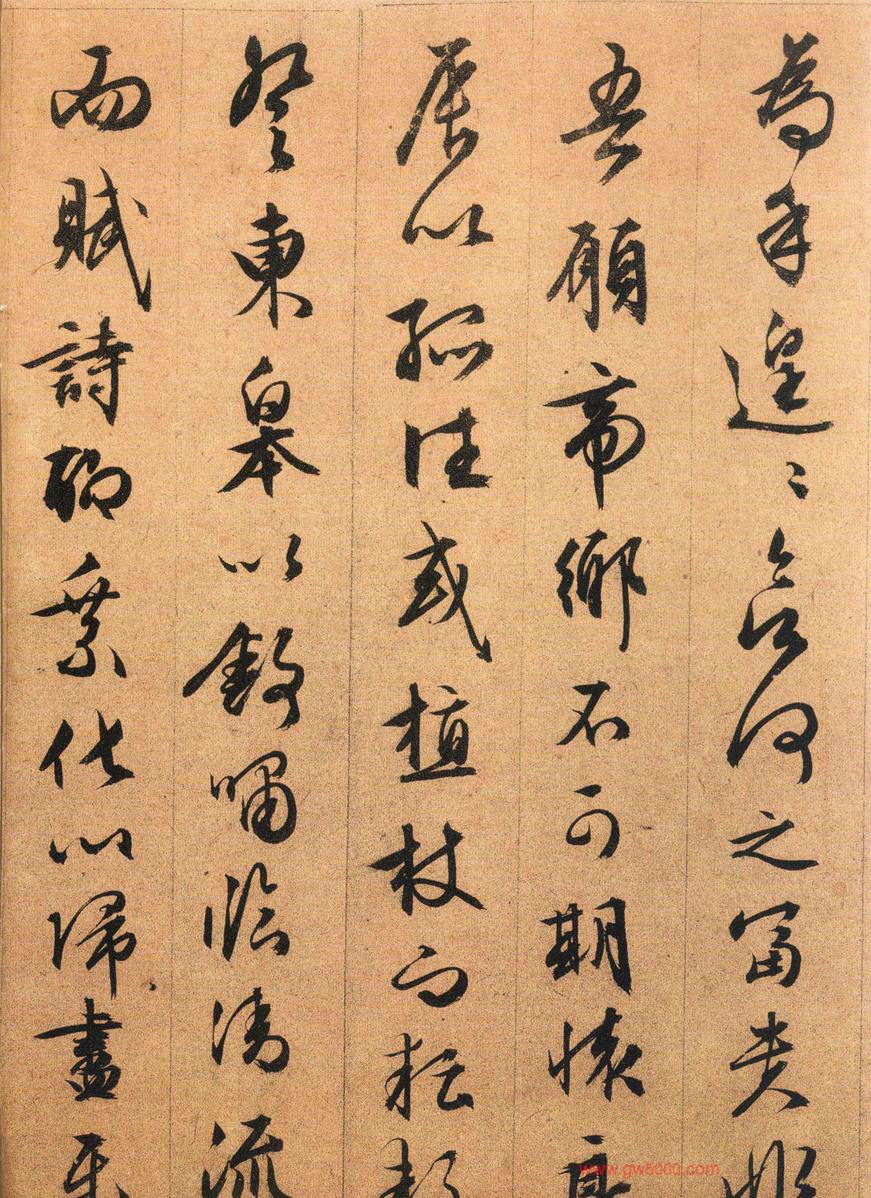 為乎遑〻欲何之富貴非
吾願帝鄉不可期懷良
辰以孤往或植杖而耘耔
登東皋以舒嘯臨清流
而賦詩聊乘化以歸盡
www.gw5000.com